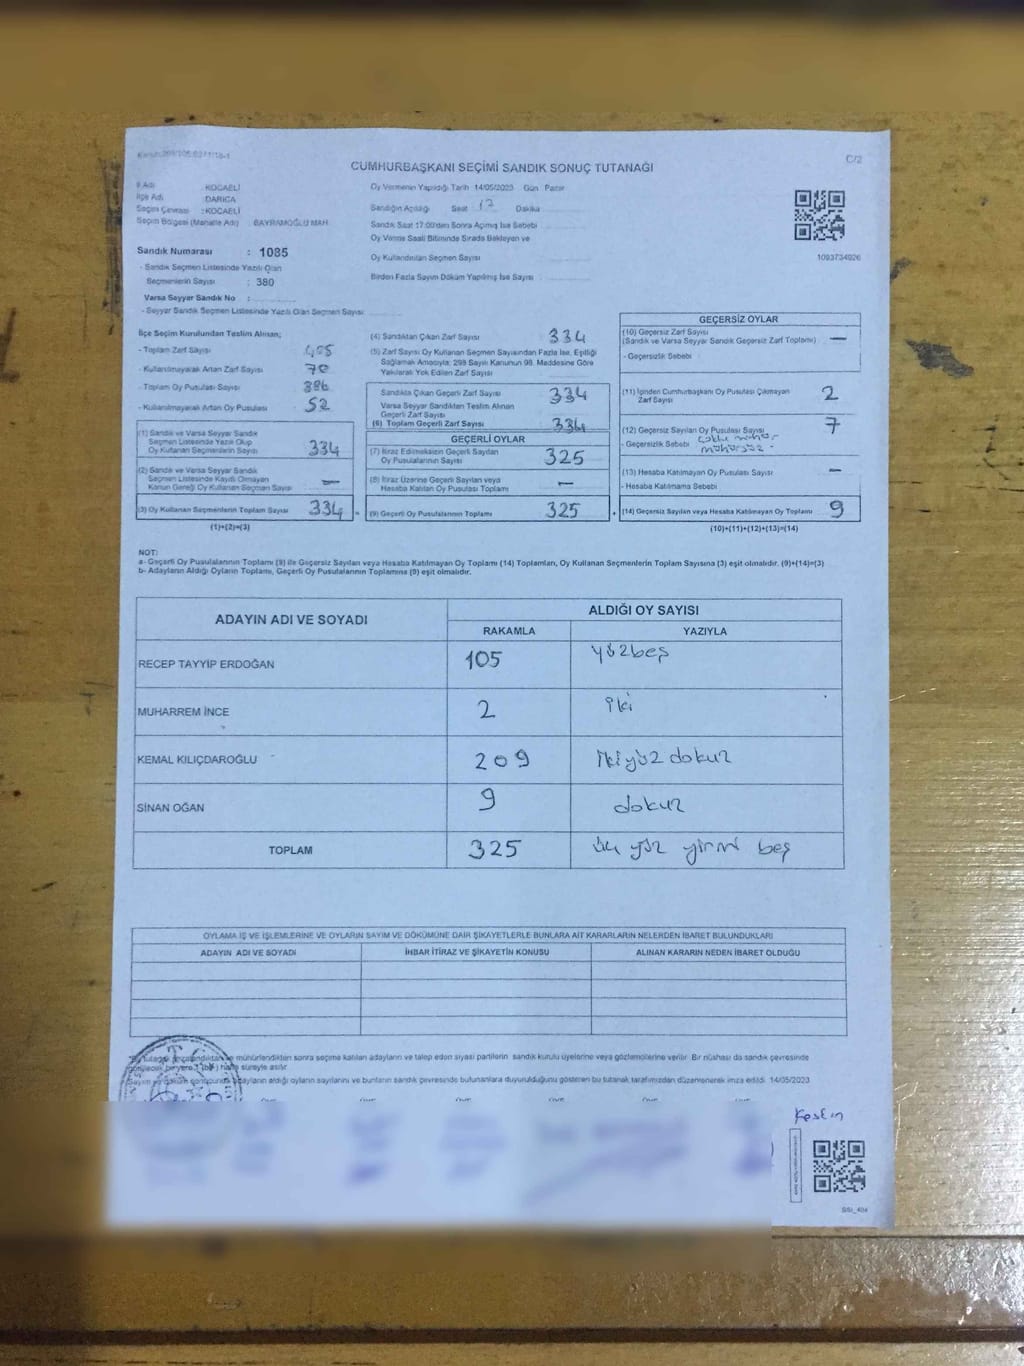 C/2
CUMHURBAŞKANI SEÇİMİ SANDIK SONUÇ TUTANAĞI
İl Adı : KOCAELİ
İlçe Adı : DARICA
Seçim Çevresi : KOCAELİ
Seçim Bölgesi (Mahalle Adı) : BAYRAMOĞLU MAH.
Sandık Numarası : 1085
- Sandık Seçmen Listesinde Yazılı Olan
Seçmenlerin Sayısı : 380
Varsa Seyyar Sandık No :
- Seyyar Sandık Seçmen Listesinde Yazılı Olan Seçmen Sayısı
Oy Vermenin Yapıldığı Tarih 14/05/2023 Gün Pazar
Sandığın Açıldığı Saat 17 Dakika
Sandık Saat 17:00'den Sonra Açılmış İse Sebebi
Oy Verme Saati Bitiminde Sırada Bekleyen ve
Oy Kullandırılan Seçmen Sayısı
Birden Fazla Sayım Döküm Yapılmış İse Sayısı
1093734926
İlçe Seçim Kurulundan Teslim Alınan;
- Toplam Zarf Sayısı 405
- Kullanılmayarak Artan Zarf Sayısı 70
- Toplam Oy Pusulası Sayısı 386
- Kullanılmayarak Artan Oy Pusulası 52
(1) Sandık ve Varsa Seyyar Sandık
Seçmen Listesinde Yazılı Olup
Oy Kullanan Seçmenlerin Sayısı 334
(2) Sandık ve Varsa Seyyar Sandık
Seçmen Listesinde Kayıtlı Olmayan
Kanun Gereği Oy Kullanan Seçmen Sayısı —
(3) Oy Kullanan Seçmenlerin Toplam Sayısı 334 =
(1)+(2)=(3)
(4) Sandıktan Çıkan Zarf Sayısı 334
(5) Zarf Sayısı Oy Kullanan Seçmen Sayısından Fazla İse, Eşitliği
Sağlamak Amacıyla; 298 Sayılı Kanunun 98. Maddesine Göre
Yakılarak Yok Edilen Zarf Sayısı
Sandıkta Çıkan Geçerli Zarf Sayısı 334
Varsa Seyyar Sandıktan Teslim Alınan
Geçerli Zarf Sayısı
(6) Toplam Geçerli Zarf Sayısı 334
GEÇERLİ OYLAR
(7) İtiraz Edilmeksizin Geçerli Sayılan
Oy Pusulalarının Sayısı 325
(8) İtiraz Üzerine Geçerli Sayılan veya
Hesaba Katılan Oy Pusulası Toplamı —
(9) Geçerli Oy Pusulalarının Toplamı 325 +
GEÇERSİZ OYLAR
(10) Geçersiz Zarf Sayısı
(Sandık ve Varsa Seyyar Sandık Geçersiz Zarf Toplamı) —
- Geçersizlik Sebebi
(11) İçinden Cumhurbaşkanı Oy Pusulası Çıkmayan
Zarf Sayısı 2
(12) Geçersiz Sayılan Oy Pusulası Sayısı 7
- Geçersizlik Sebebi
(13) Hesaba Katılmayan Oy Pusulası Sayısı —
- Hesaba Katılmama Sebebi
(14) Geçersiz Sayılan veya Hesaba Katılmayan Oy Toplamı 9
(10)+(11)+(12)+(13)=(14)
NOT:
a- Geçerli Oy Pusulalarının Toplamı (9) ile Geçersiz Sayılan veya Hesaba Katılmayan Oy Toplamı (14) Toplamları, Oy Kullanan Seçmenlerin Toplam Sayısına (3) eşit olmalıdır. (9)+(14)=(3)
b- Adayların Aldığı Oyların Toplamı, Geçerli Oy Pusulalarının Toplamına (9) eşit olmalıdır.
ADAYIN ADI VE SOYADI ALDIĞI OY SAYISI
RAKAMLA YAZIYLA
RECEP TAYYİP ERDOĞAN 105 yüzbeş
MUHARREM İNCE 2 iki
KEMAL KILIÇDAROĞLU 209 ikiyüz dokuz
SİNAN OĞAN 9 dokuz
TOPLAM 325 üç yüz yirmi beş
OYLAMA İŞ VE İŞLEMLERİNE VE OYLARIN SAYIM VE DÖKÜMÜNE DAİR ŞİKAYETLERLE BUNLARA AİT KARARLARIN NELERDEN İBARET BULUNDUKLARI
ADAYIN ADI VE SOYADI İHBAR İTİRAZ VE ŞİKAYETİN KONUSU ALINAN KARARIN NEDEN İBARET OLDUĞU
mühürlendikten sonra seçime katılan adayların ve talep eden siyasi partilerin sandık kurulu üyelerine veya gözlemcilerine verilir. Bir nüshası da sandık çevresinde
süreyle asılır.
adayların aldığı oyların sayılarını ve bunların sandık çevresinde bulunanlara duyurulduğunu gösteren bu tutanak tarafımızdan düzenlenerek imza edildi. 14/05/2023
Keskin